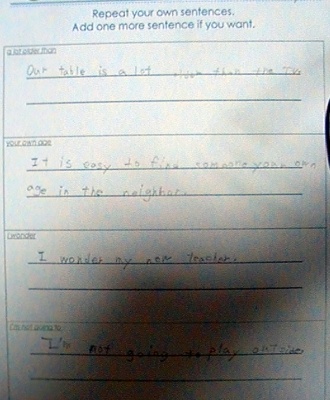 Repeat your own sentences.
Add one more sentence if you want.
a lot older than
Our table is a lot older than the TV.
your own age
It is easy to find someone your own
age in the neighbor.
I wonder
I wonder my new teacher.
I'm not going to
I'm not going to play outside